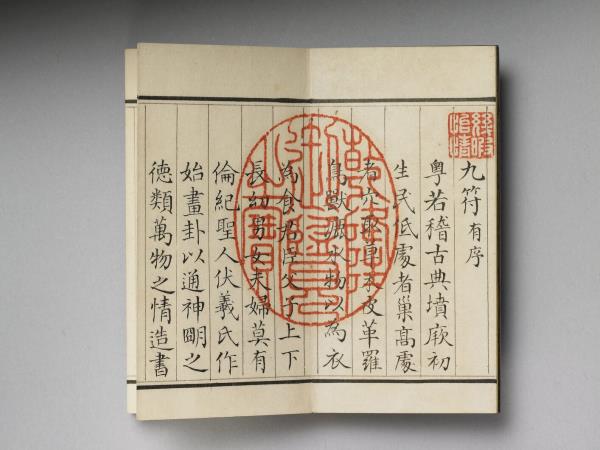 九符有序
粵若稽古典墳厥初
生民低處者巢高處
者穴取草木皮革羅
鳥獸漁水物以為衣
為食君臣父子上下
長幼男女夫婦莫有
倫紀聖人伏羲氏作
始畫卦以通神明之
德類萬物之情造書
乾隆御覽之寶